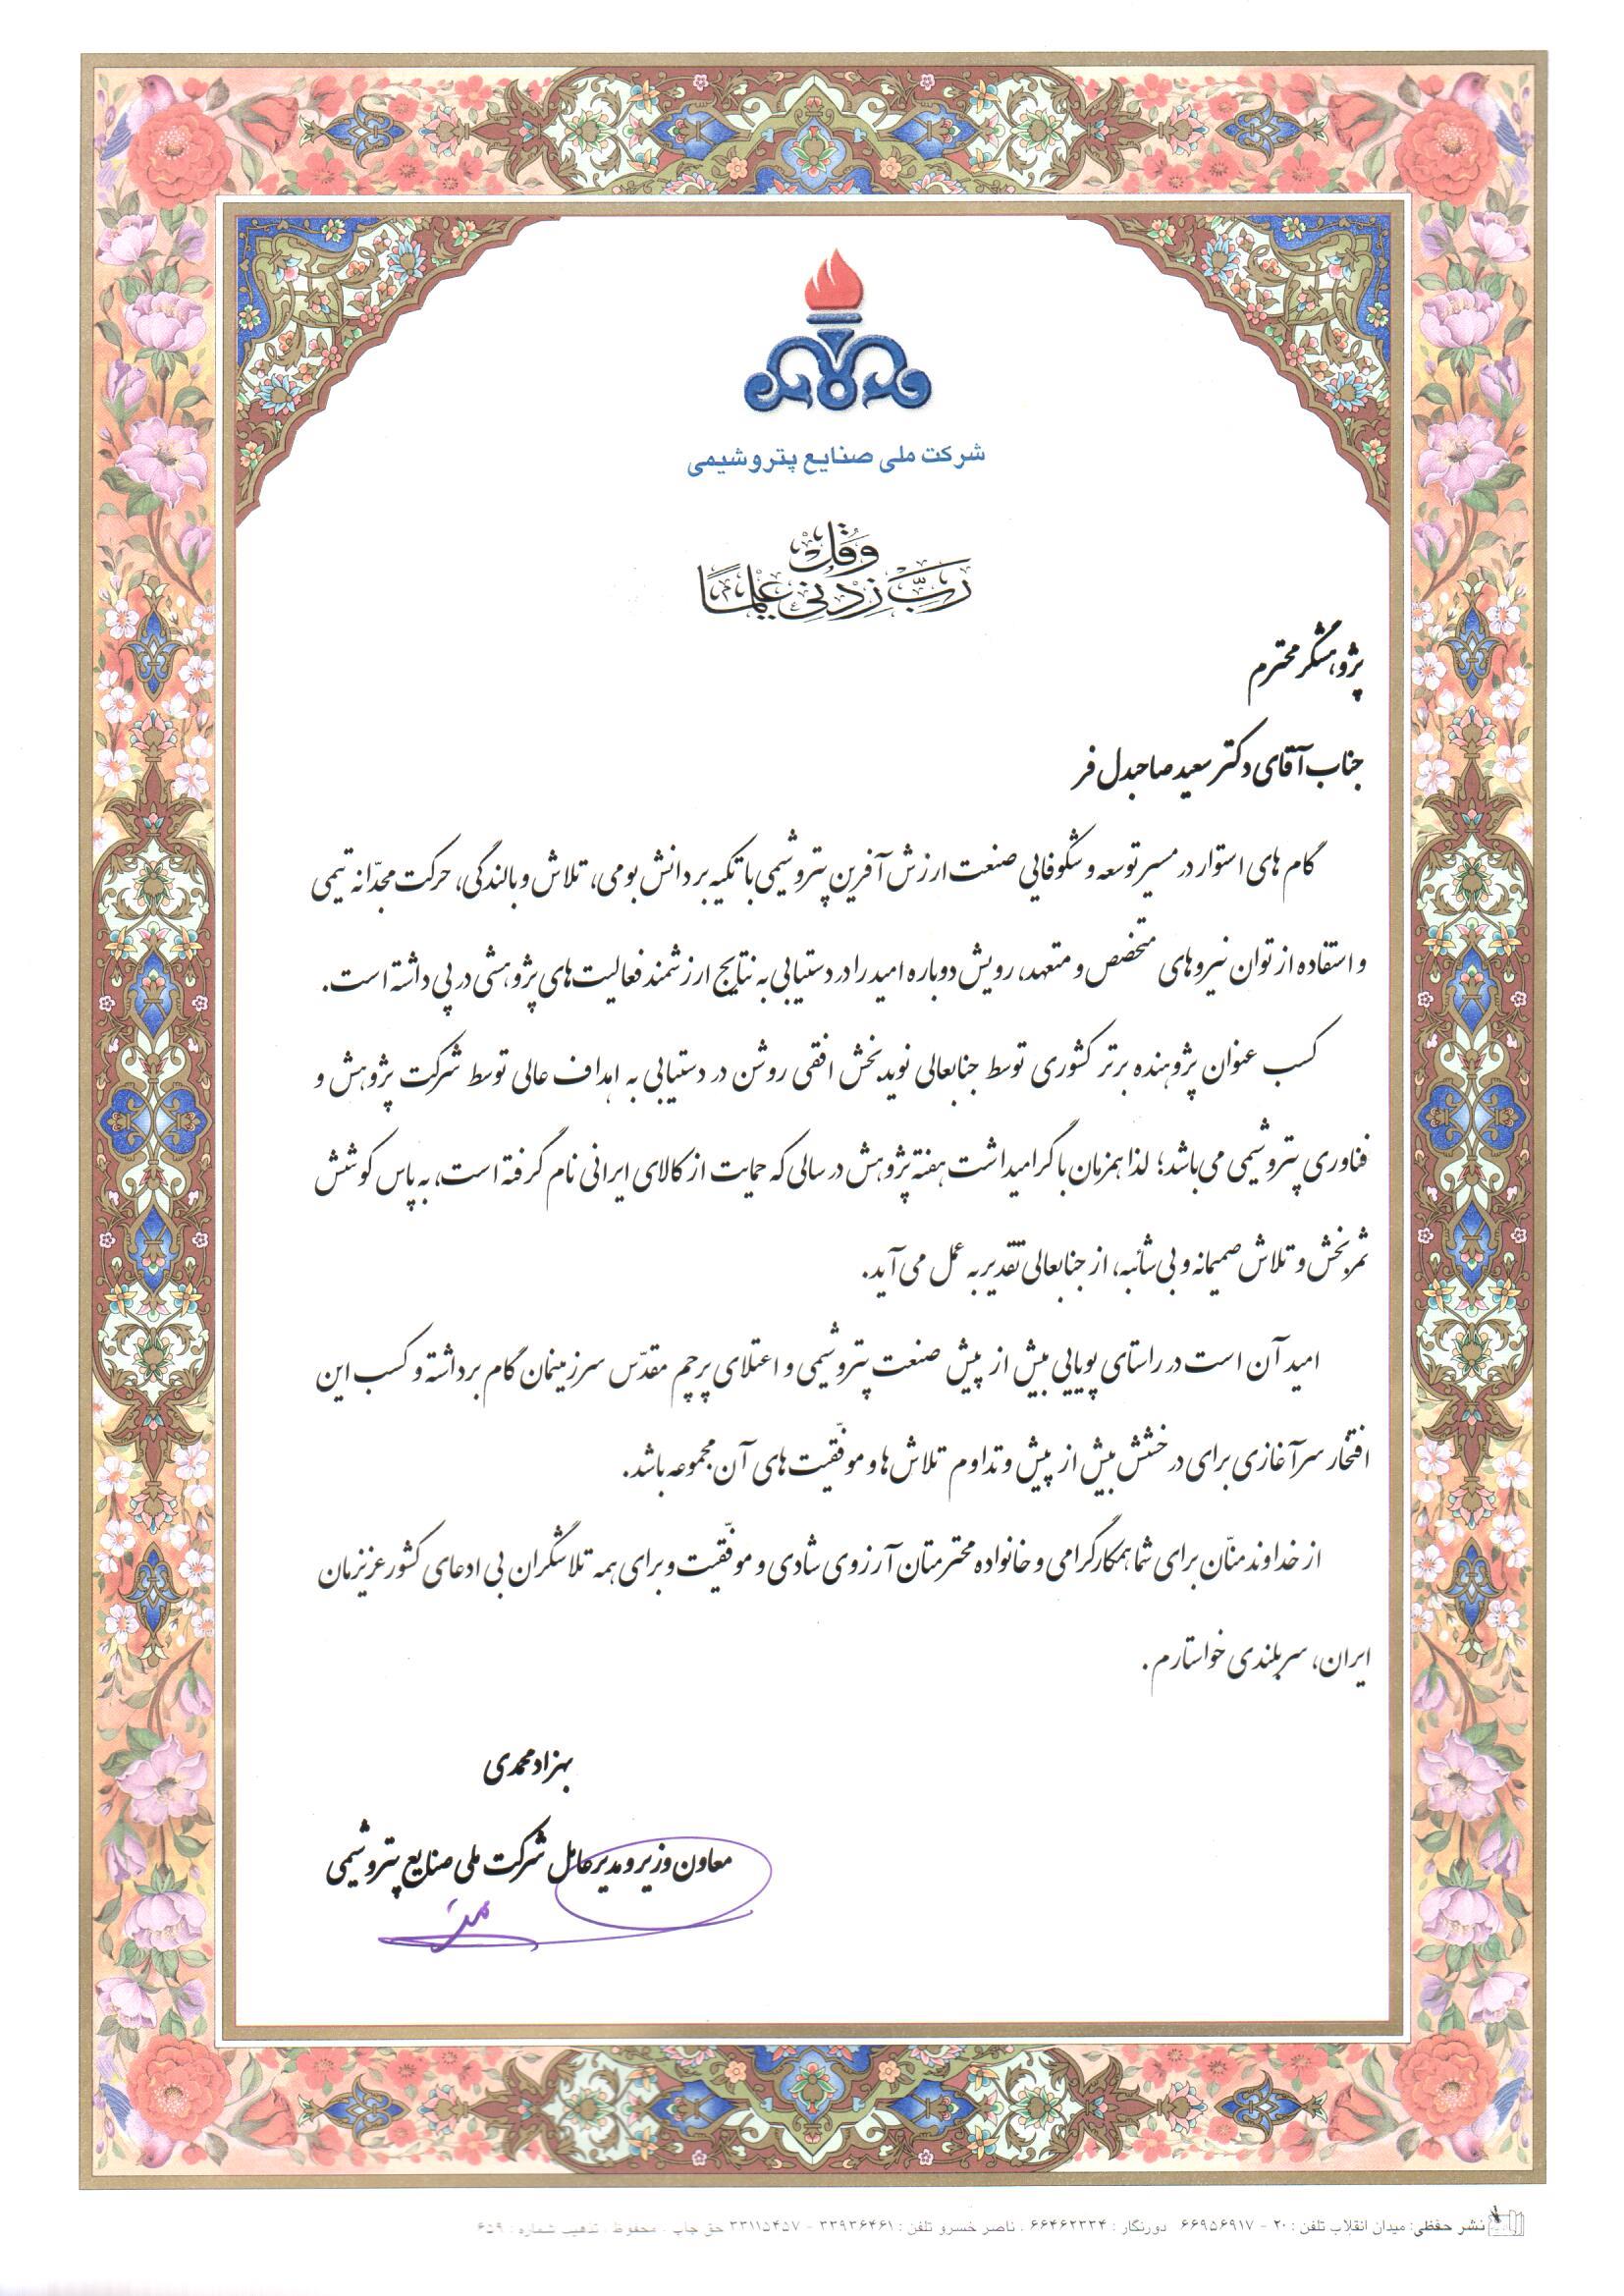 شرکت ملی صنایع پتروشیمی
وَقُل
رَبِّ زِدْنِی عِلْمًا
پژوهشگر محترم
جناب آقای دکتر سعید صاحبدل فر
گام های استوار در مسیر توسعه و شکوفایی صنعت ارزش آفرین پتروشیمی با تکیه بر دانش بومی، تلاش و بالندگی، حرکت مجدّانه تیمی
و استفاده از توان نیروهای متخصص و متعهد، رویش دوباره امید را در دستیابی به نتایج ارزشمند فعالیت های پژوهشی در پی داشته است.
کسب عنوان پژوهنده برتر کشوری توسط جنابعالی نویدبخش افقی روشن در دستیابی به اهداف عالی توسط شرکت پژوهش و
فناوری پتروشیمی می باشد؛ لذا همزمان با گرامیداشت هفته پژوهش در سالی که حمایت از کالای ایرانی نام گرفته است، به پاس کوشش
ثمربخش و تلاش صمیمانه و بی شائبه، از جنابعالی تقدیر به عمل می آید.
امید آن است در راستای پویایی بیش از پیش صنعت پتروشیمی و اعتلای پرچم مقدّس سرزمینمان گام برداشته و کسب این
افتخار سرآغازی برای درخشش بیش از پیش و تداوم تلاش ها و موفقیّت های آن مجموعه باشد.
از خداوند منّان برای شما همکار گرامی و خانواده محترمتان آرزوی شادی و موفّقیت و برای همه تلاشگران بی ادعای کشور عزیزمان
ایران، سربلندی خواستارم.
بهزاد محمدی
معاون وزیر و مدیرعامل شرکت ملی صنایع پتروشیمی
نشر حفظی: میدان انقلاب تلفن: ۲۰ - ۶۶۹۵۶۹۱۷ دورنگار: ۶۶۴۶۲۳۳۴ . ناصر خسرو تلفن: ۳۳۹۳۶۴۶۱ - ۳۳۱۱۵۴۵۷ حق چاپ . محفوظ . تذهیب شماره: ۶۵۹